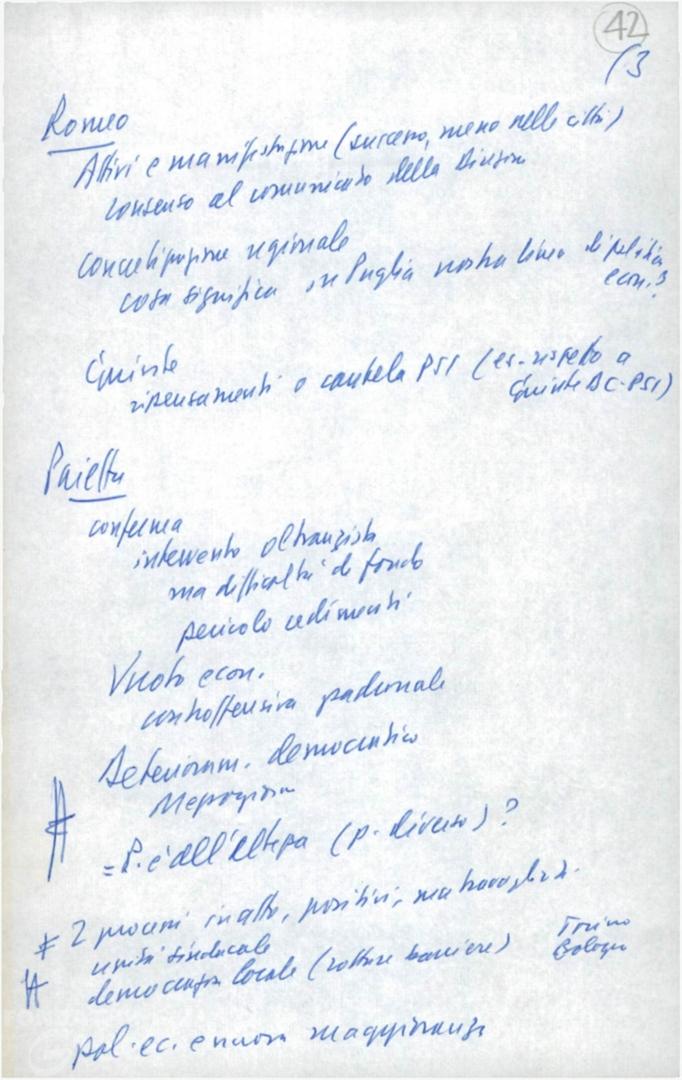 42
(3
Romeo
Attivi e manifestazione (successo, meno nelle città)
consenso al comunicato della Direzione
regionale
cosa significa in Puglia nostra linea di politica
econ.?
Giunte
ripensamenti o cautela PSI (es. rispetto a
Giunte DC-PSI)
Paietta
conferma
intervento oltranzista
ma difficoltà di fondo
pericolo cedimenti
Vuoto econ.
controffensiva padronale
Deterioram. democratico
= P. è all'altezza (p. diverso)?
2 processi in atto, positivi, ma
unità sindacale
Torino
democrazia locale (rottura barriere)
Bologna
pol. ec. e nuova maggioranza